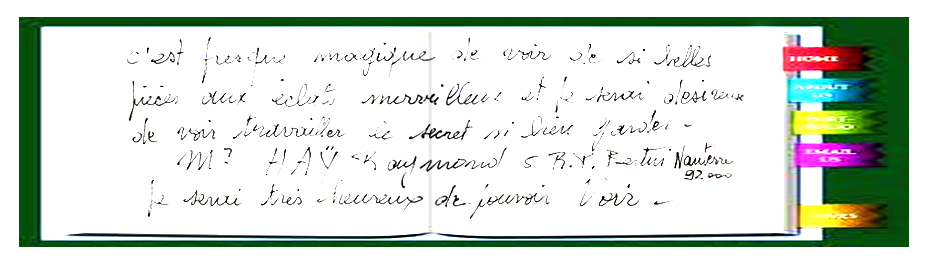 c'est presque magique de voir de si belles
pièces aux éclats merveilleux et je serai désireux
de voir travailler le secret si bien garder -
M? HAŸ Raymond 5 R. Nanterre
92.000
je serai très heureux de pouvoir voir -
HOME
ABOUT US
EMAIL US